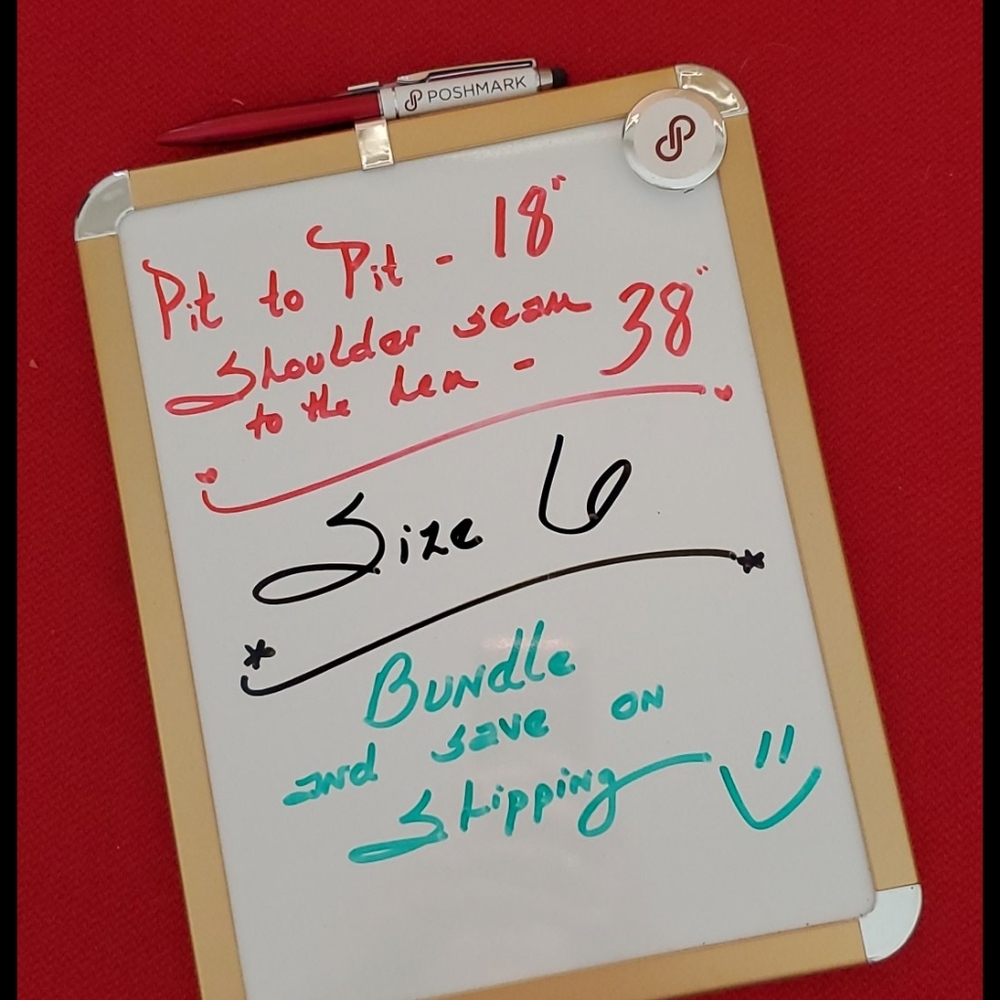 POSHMARK
Pit to Pit - 18"
Shoulder seam
to the hem - 38"
Size 6
Bundle
and save on
Shipping